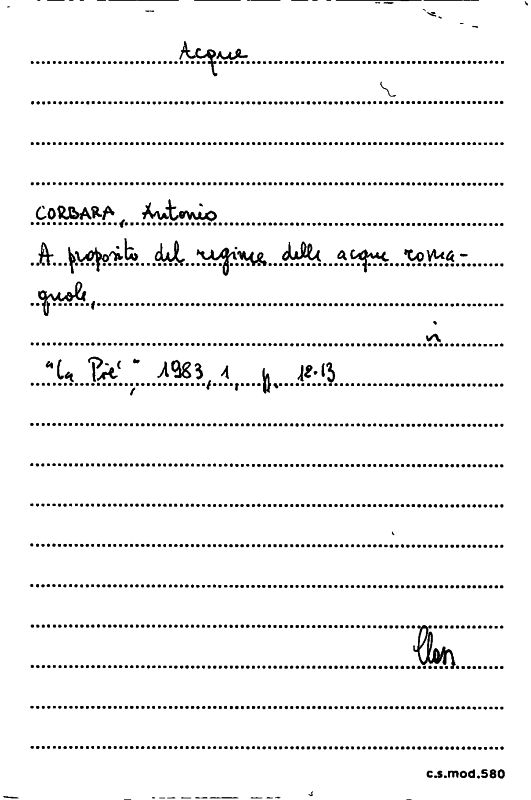 Acque
CORBARA, Antonio
A proposito del regime delle acque roma-
gnole,
in
"La Piè", 1983, 1, p. 12-13
c.s.mod.580